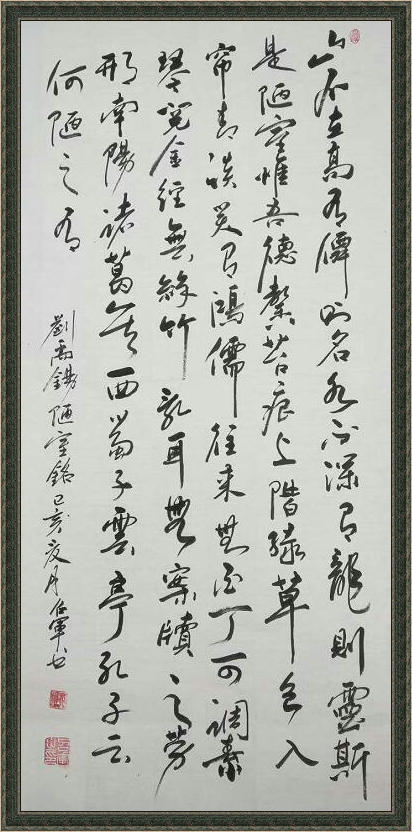 山不在高有僊則名水不深有龍則靈斯
是陋室惟吾德馨苔痕上階綠草色入
帘青談笑有鴻儒往來無白丁可調素
琴閱金經無絲竹亂耳無案牘之勞
形南陽諸葛廬西蜀子雲亭孔子云
何陋之有
劉禹錫陋室銘己亥夏月任軍書